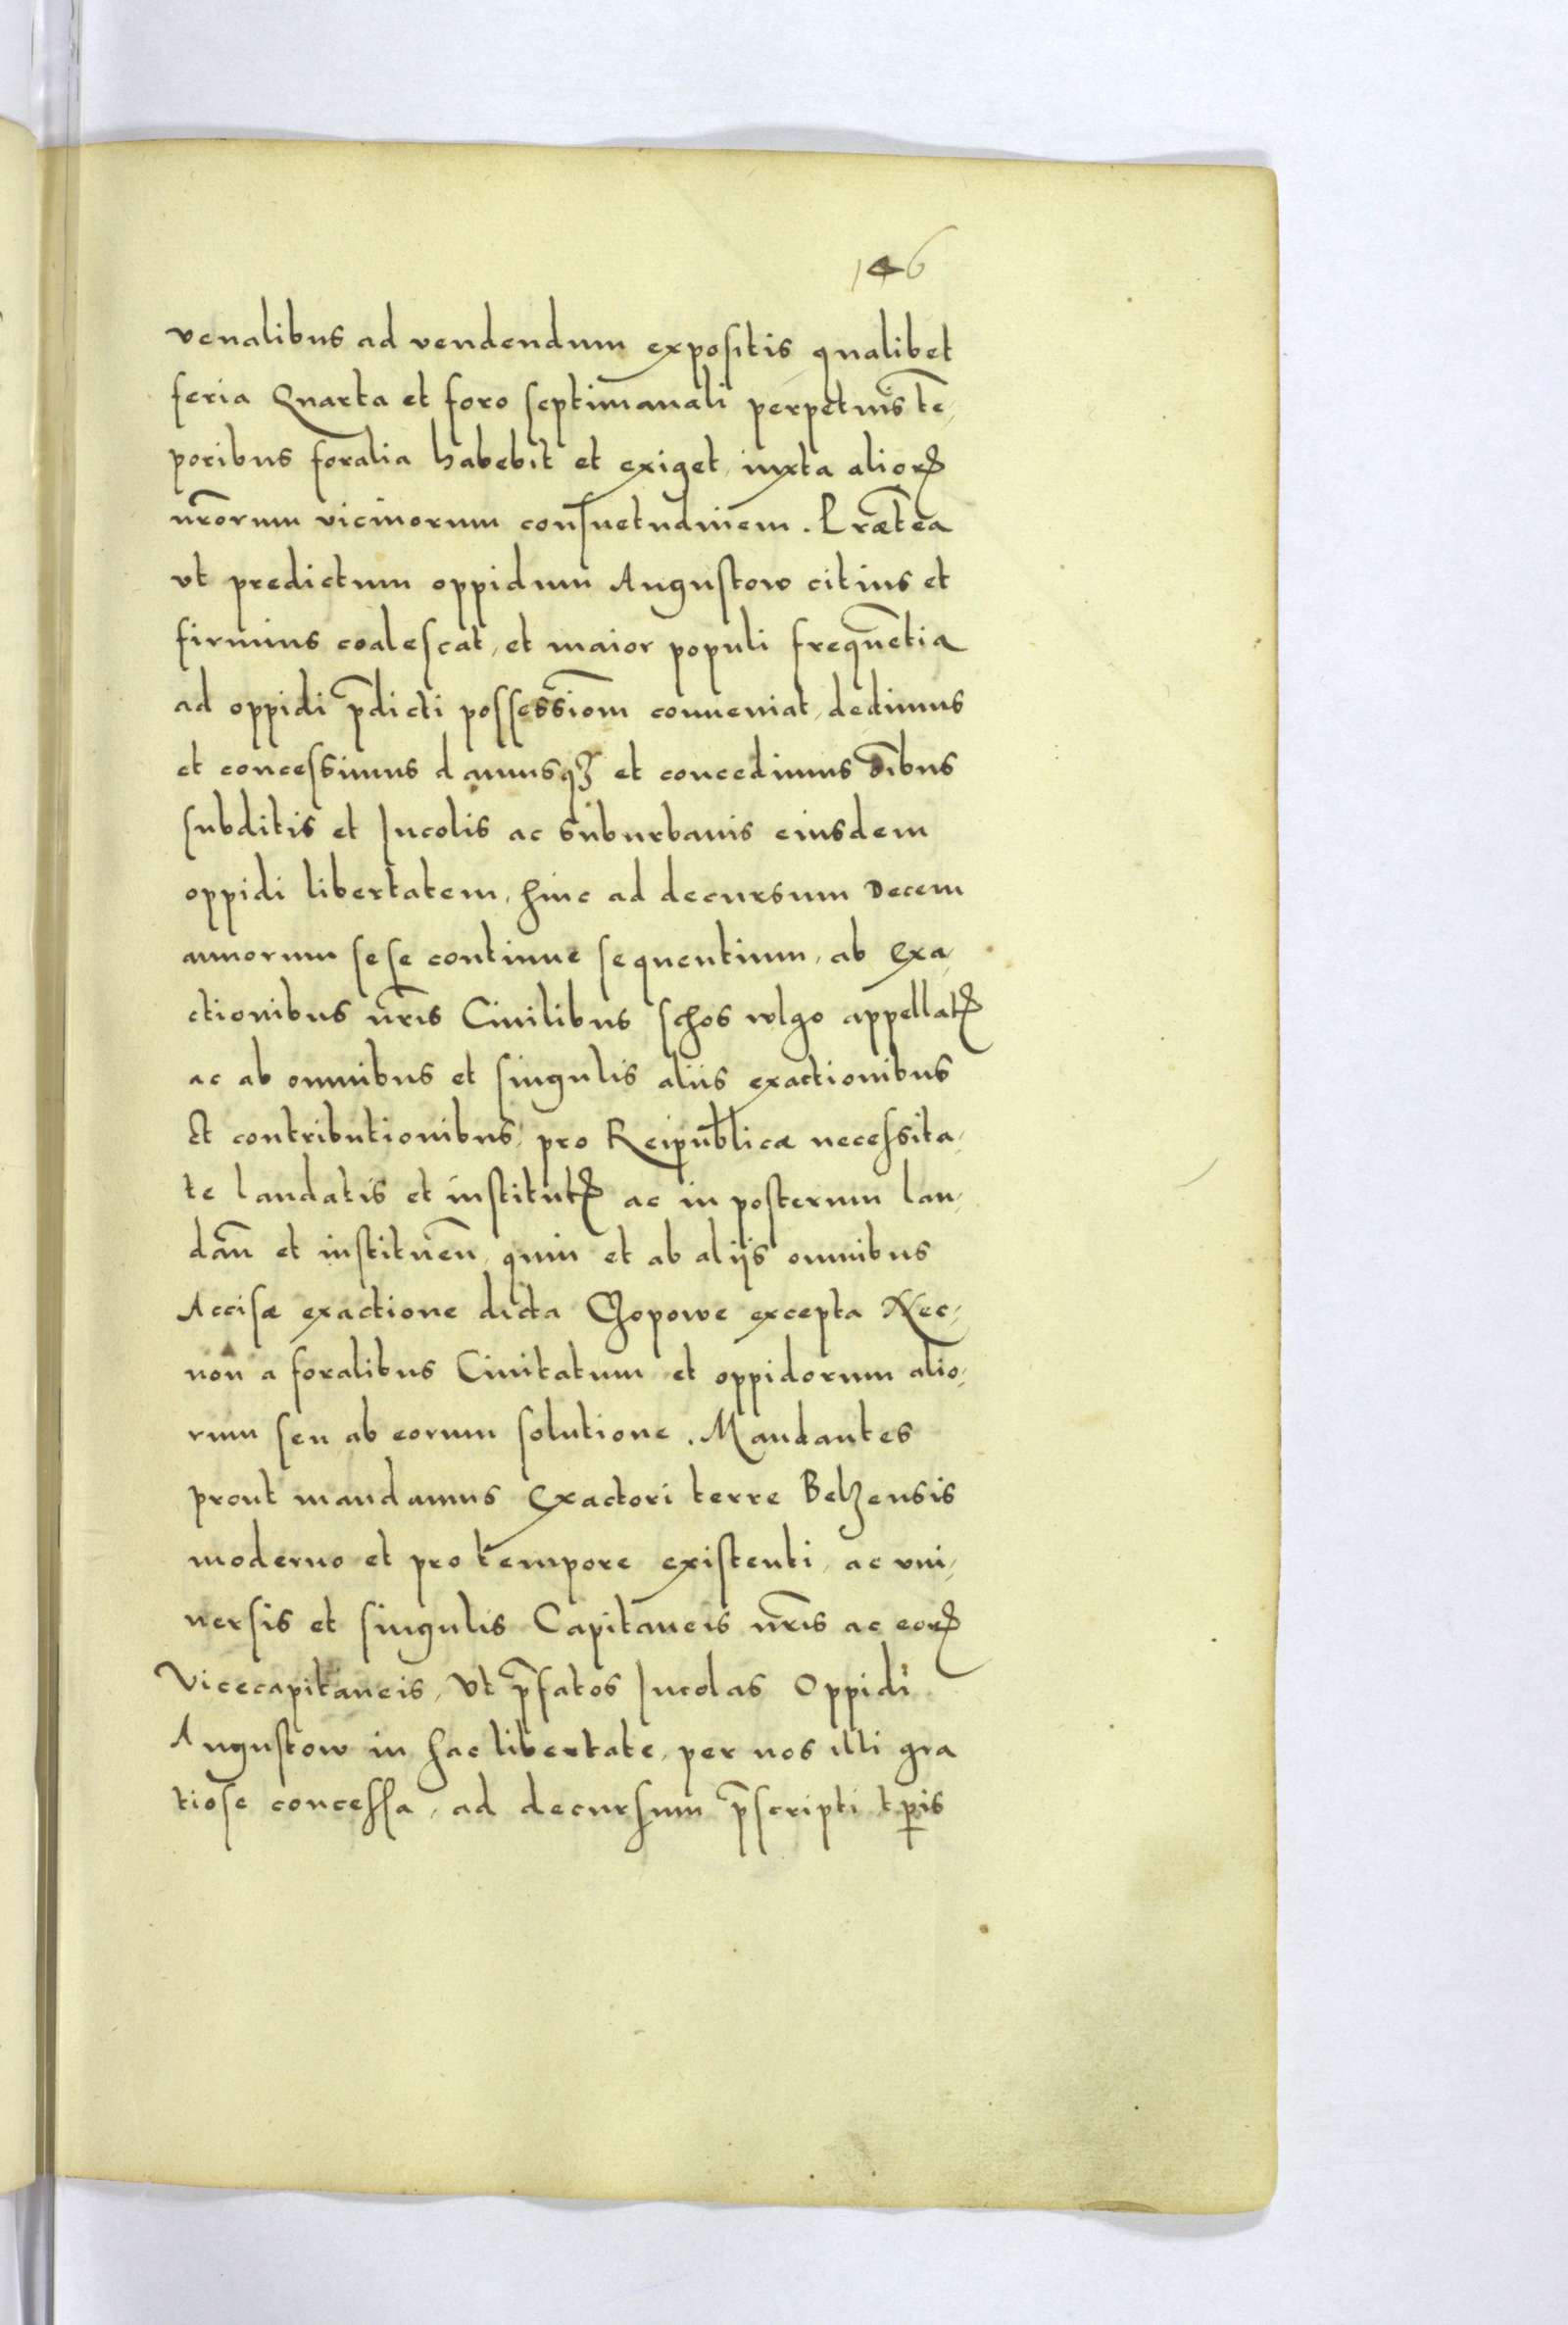 146
venalibus ad vendendum expositis qualibet
feria Quarta et foro septimanali perpetuis tē,
poribus foralia habebit et exiget, iuxta alioꝝ
nr̄orum vicinorum consuetudinem. Præt̄ea
vt predictum oppidum Augustow citius et
firmius coalescat, et maior populi frequētia
ad oppidi p̄dicti possessiōm conueniat, dedimus
et concessimus damusqꝫ et concedimus oībus
subditis et Incolis ac suburbanis eiusdem
oppidi libertatem, hinc ad decursum Decem
annorum sese continue sequentium, ab Exa,
ctionibus nr̄is Ciuilibus schos wlgo appellatꝭ
ac ab omnibus et singulis aliis exactionibus
Et contributionibus, pro Reipublicæ necessita,
te laudatis et institutꝭ ac in posterum lau,
dan̄ et instituen̄, quin et ab alijs omnibus
Accisæ exactione dicta Chopowe excepta Nec,
non a foralibus Ciuitatum et oppidorum alio,
rum seu ab eorum solutione. Mandantes
prout mandamus Exactori terre Belzensis
moderno et pro tempore existenti, ac vni,
uersis et singulis Capitaneis nr̄is ac eoꝝ
Vicecapitaneis, Vt p̄fatos Incolas Oppidi
Augustow in hac libertate, per nos illi gra
tiose concessa, ad decursum p̄scripti tp̱is